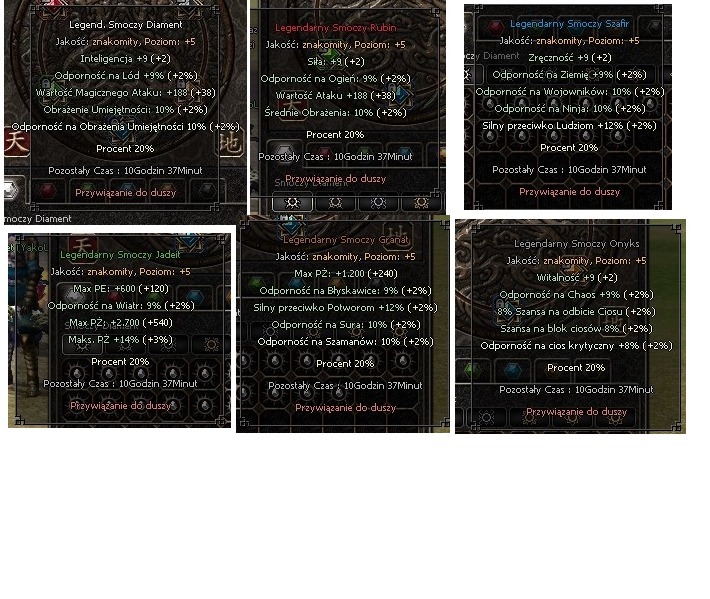 Legend. Smoczy Diament
Jakość: znakomity, Poziom: +5
Inteligencja +9 (+2)
Odporność na Lód +9% (+2%)
Wartość Magicznego Ataku: +188 (+38)
Obrażenie Umiejętności: 10% (+2%)
Odporność na Obrażenia Umiejętności 10% (+2%)
Procent 20%
Pozostały Czas : 10Godzin 37Minut
Przywiązanie do duszy
moczy Diament
Legendarny Smoczy Rubin
Jakość: znakomity, Poziom: +5
Siła: +9 (+2)
Odporność na Ogień: 9% (+2%)
Wartość Ataku +188 (+38)
Średnie Obrażenia: 10% (+2%)
Procent 20%
Pozostały Czas : 10Godzin 37Minut
Przywiązanie do duszy
Smoczy Diament
Legendarny Smoczy Szafir
Jakość: znakomity, Poziom: +5
Zręczność +9 (+2)
Odporność na Ziemię +9% (+2%)
Odporność na Wojowników: 10% (+2%)
Odporność na Ninja: 10% (+2%)
Silny przeciwko Ludziom +12% (+2%)
Procent 20%
Pozostały Czas : 10Godzin 37Minut
Przywiązanie do duszy
Legendarny Smoczy Jadeit
Jakość: znakomity, Poziom: +5
Max PE: +600 (+120)
Odporność na Wiatr: 9% (+2%)
Max PŻ: +2.700 (+540)
Maks. PŻ +14% (+3%)
Procent 20%
Pozostały Czas : 10Godzin 37Minut
Przywiązanie do duszy
Legendarny Smoczy Granat
Jakość: znakomity, Poziom: +5
Max PŻ: +1.200 (+240)
Odporność na Błyskawice: 9% (+2%)
Silny przeciwko Potworom +12% (+2%)
Odporność na Sura: 10% (+2%)
Odporność na Szamanów: 10% (+2%)
Procent 20%
Pozostały Czas : 10Godzin 37Minut
Przywiązanie do duszy
Legendarny Smoczy Onyks
Jakość: znakomity, Poziom: +5
Witalność +9 (+2)
Odporność na Chaos +9% (+2%)
8% Szansa na odbicie Ciosu (+2%)
Szansa na blok ciosów 8% (+2%)
Odporność na cios krytyczny +8% (+2%)
Procent 20%
Pozostały Czas : 10Godzin 37Minut
Przywiązanie do duszy